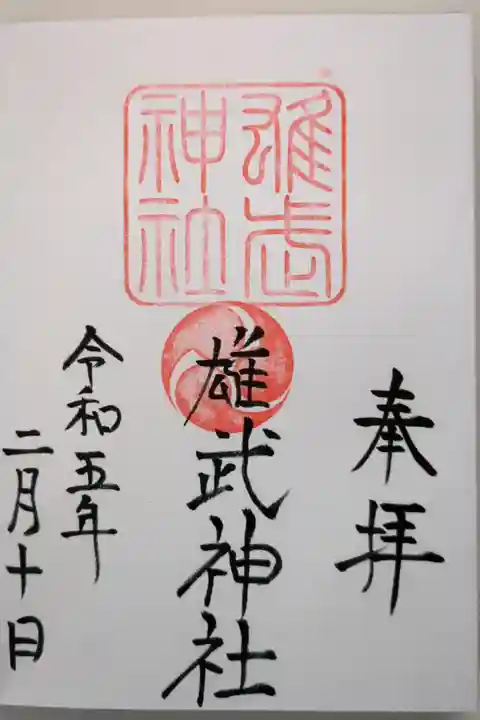 奉拝
雄武神社
雄武神社
令和五年
二月十日